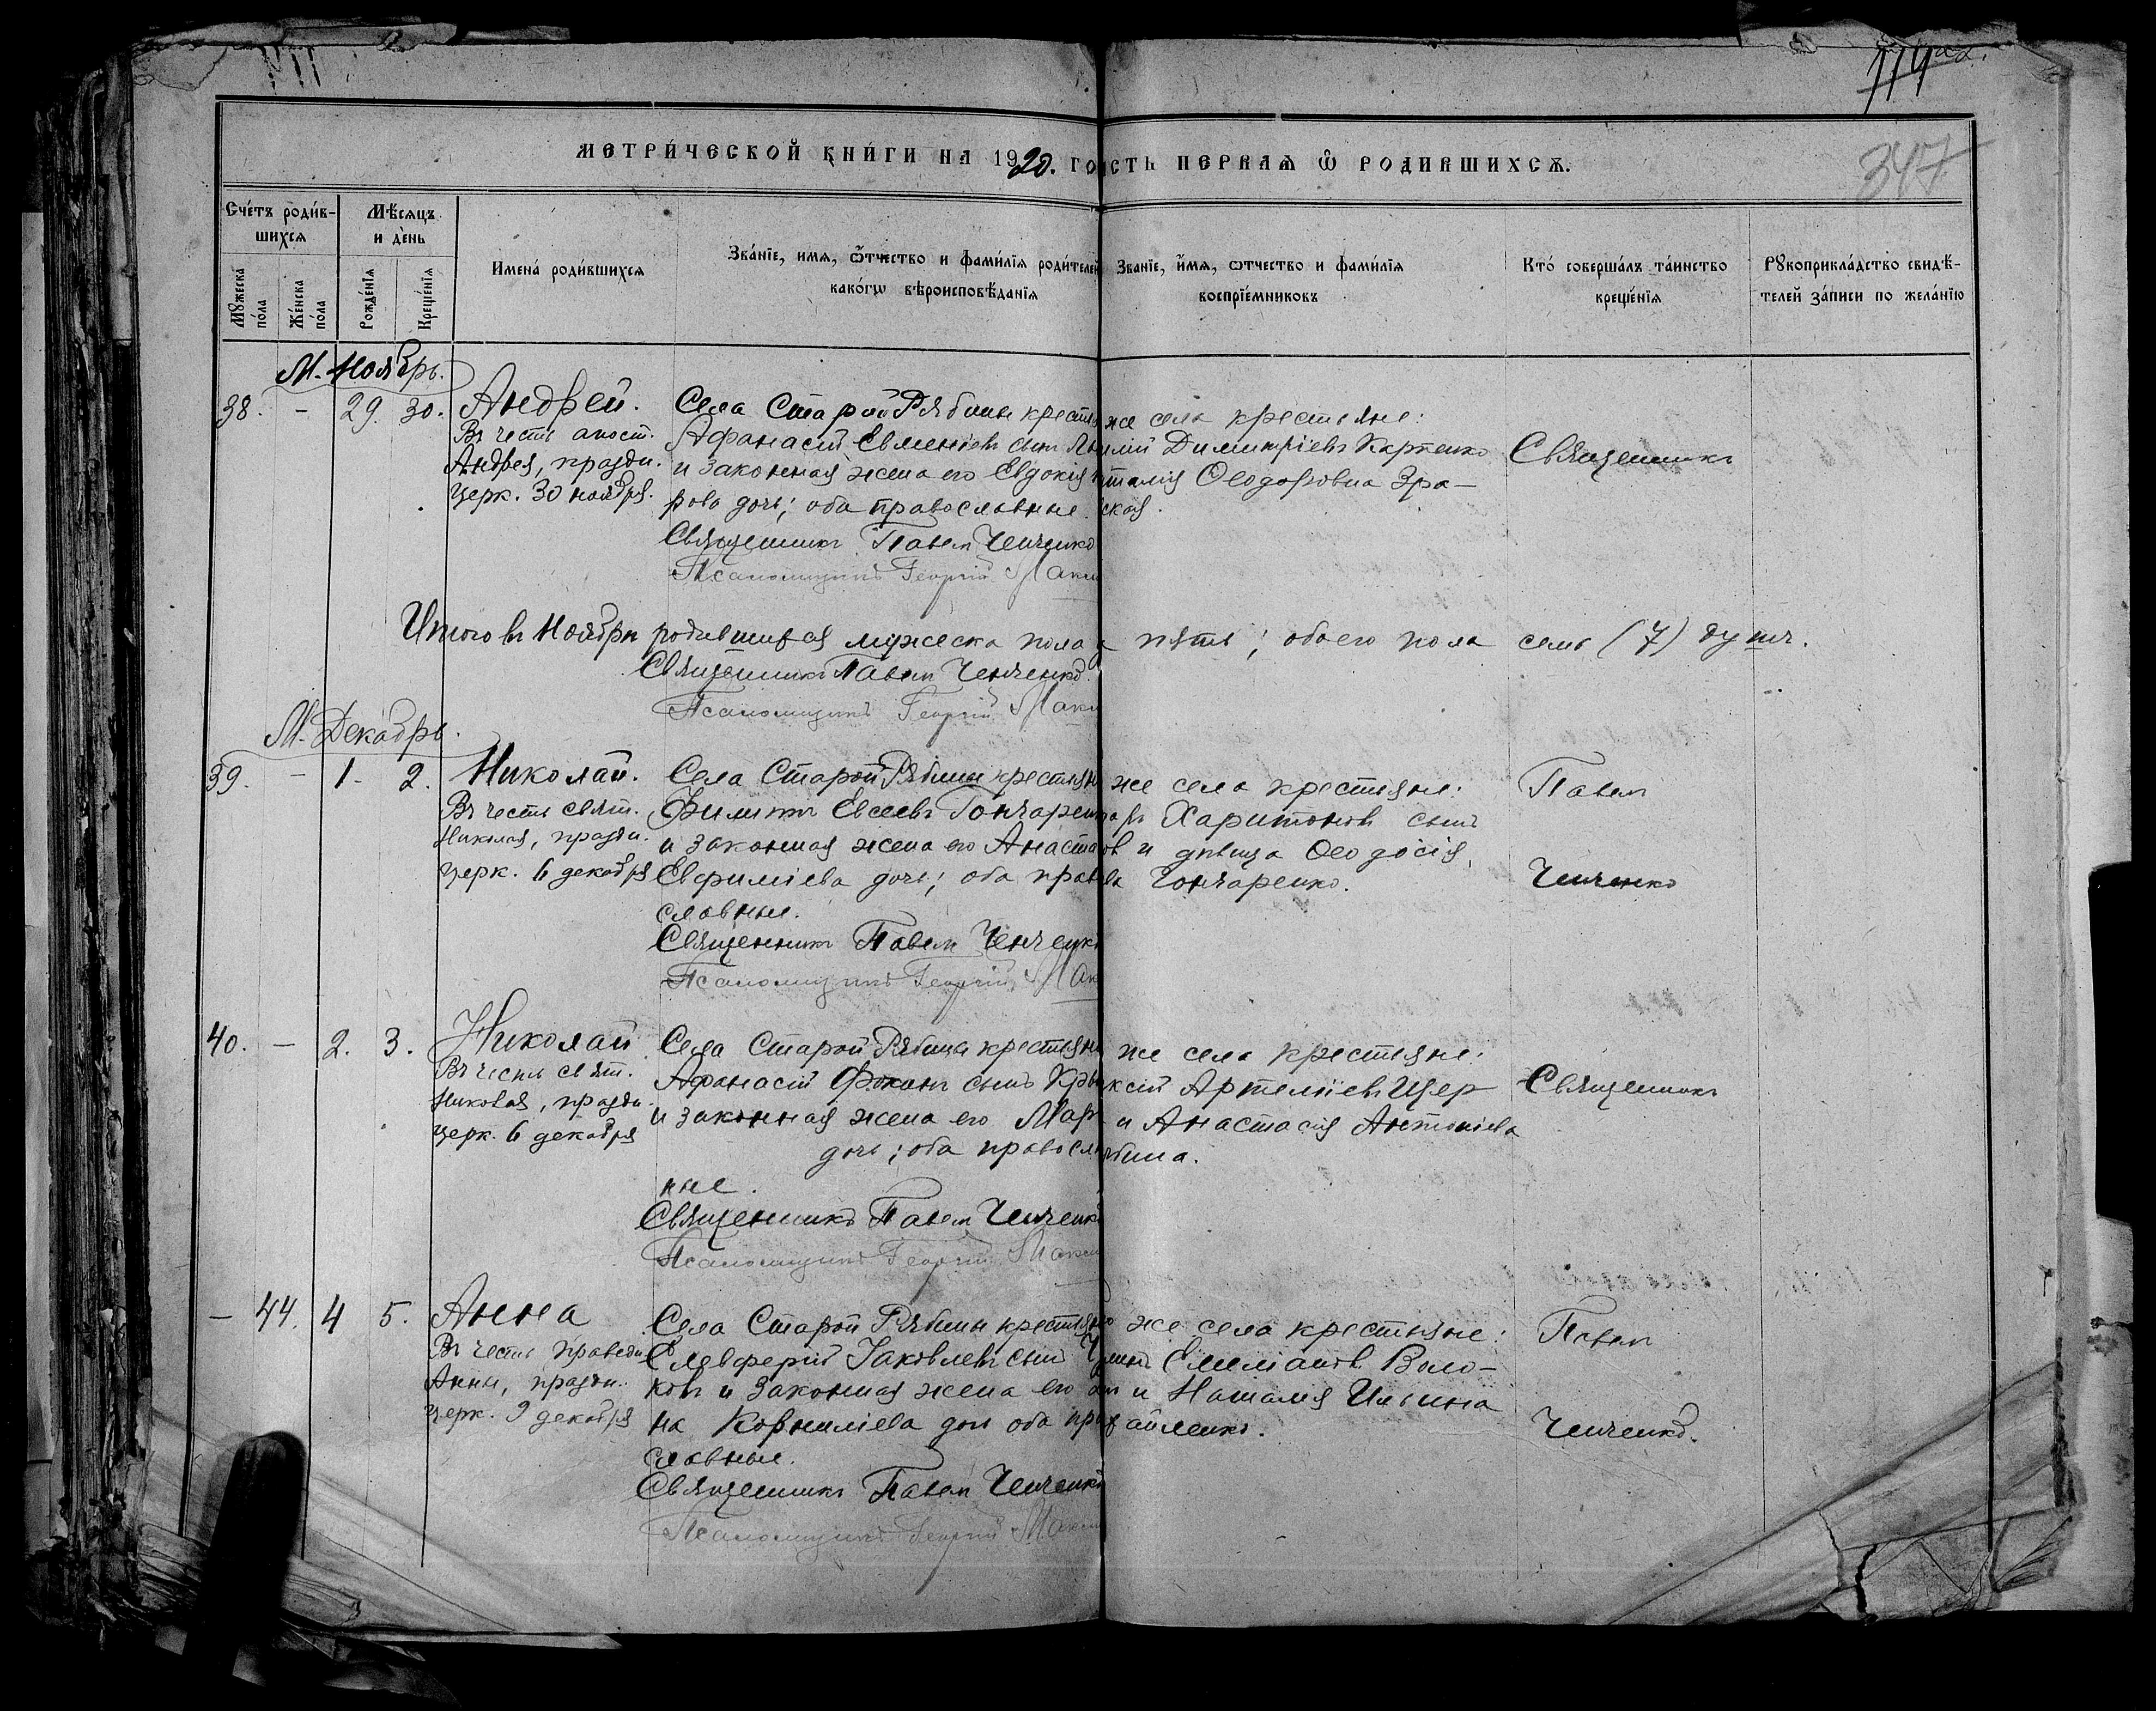 114
347
МЕТРИ́ЧЕСКОЙ КНИ́ГИ НА 1920. ГО
СТЬ ПЕРВАѦ Ѿ РОДИВШИХСѦ.
Сче́тъ роди́в-
шихсѧ
Мѣ́сѧцъ
и де́нь
Мꙋжеска
по́ла
Же́нска
по́ла
Рожде́нїѧ
Креще́нїѧ
Имена̀ роди́вшихсѧ
Зва́нїе, имѧ, ѻ҆́тчество и фами́лїѧ роди́телей
како́гѡ вѣроисповѣ́данїѧ
Зва́нїе, и҆́мѧ, ѻтчество и фами́лїѧ
воспрїе́мниковъ
Кто́ соверша́лъ та́инство
креще́нїѧ
Рꙋкоприкла́дство свидѣ́-
телей за́писи по жела́нїю
М. Ноябрь.
38. - 29. 30.
Андрей.
Въ честь апост.
Андрея, праздн.
церк. 30 ноября.
Села Старой Рябины крестья
Афанасій Евменіевъ сынъ
и законная жена его Евдокія
рова дочь; оба православные.
Священникъ Павелъ Ченченко
Псаломщикъ Георгій Макси
же села крестьяне:
Димитріевъ Карпенко
талія Ѳеодоровна Зра-
ская.
Священникъ
Итого въ Ноябрѣ родившихся мужеска пола
пять; обоего пола семь (7) душъ.
Священникъ Павелъ Ченченко.
Псаломщикъ Георгій Макс
М. Декабрь.
39. - 1. 2.
Николай.
Въ честь свят.
Николая, праздн.
церк. 6 декабря
Села Старой Рябины крестьян
Филиппъ Евсеевъ Гончарен
и законная жена его Анаста
Евфиміева дочь; оба право
славные.
Священникъ Павелъ Ченченко
Псаломщикъ Георгій Мак
же села крестьяне:
Харитоновъ сынъ
ов и дѣвица Ѳеодосія
ва Гончаренко.
Павелъ
Ченченко
40. - 2. 3.
Николай
Въ честь свят.
Николая, праздн.
церк. 6 декабря
Села Старой Рябины крестьян
Афанасій Фокинъ сынъ
и законная жена его Мар
дочь; оба правосл
ные.
Священникъ Павелъ Ченченко
Псаломщикъ Георгій Макси
же села крестьяне:
ксій Артеміевъ Щер
и Анастасія Антоніева
бина.
Священникъ
- 44. 4 5.
Анна
Въ честь праведн.
Анны, праздн.
церк. 9 декабря
Села Старой Рябины крестьян
Елевферій Іаковлевъ сынъ
ковъ и законная жена его
на Корниліева дочь оба пра
славные.
Священникъ Павелъ Ченченко
Псаломщикъ Георгій Макси
же села крестьяне:
Емеліановъ Воло-
и Наталія Ильина
айленко.
Павелъ
Ченченко.